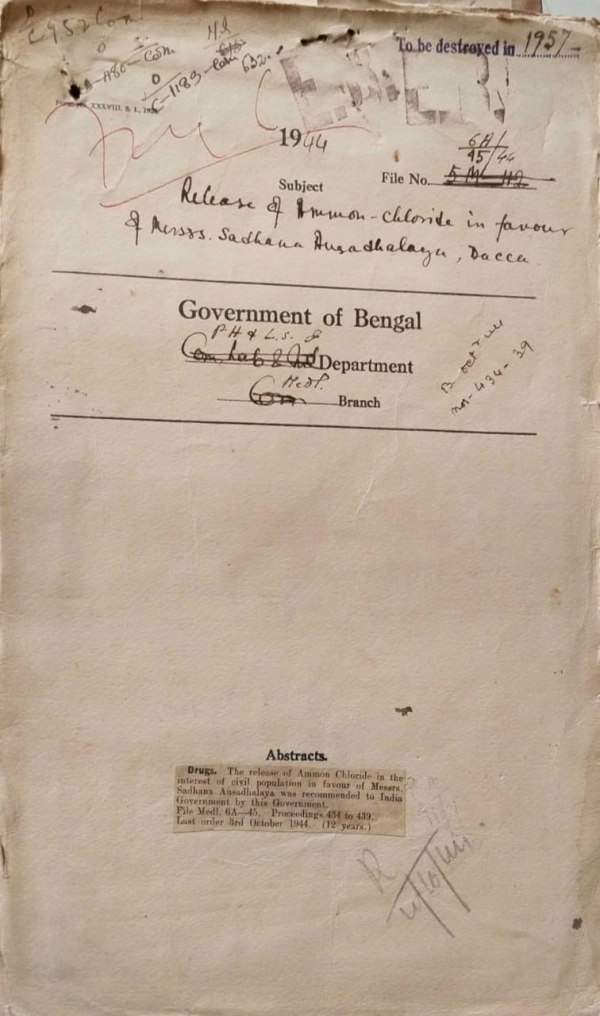 C 952 Com.
To be destroyed in 1957
1944
6A/
45/44
Subject
File No.
Release of Ammon-chloride in favour
of Messrs. Sadhana Ausadhalaya, Dacca.
Government of Bengal
P.H & L.S. G
Department
Medl.
Com Branch
B Oct 44
nos-434-39
Abstracts.
Drugs. The release of Ammon Chloride in the
interest of civil population in favour of Messrs.
Sadhana Ausadhalaya was recommended to India
Government by this Government.
File Medl. 6A—45. Proceedings 434 to 439.
Last order 3rd October 1944. (12 years.)